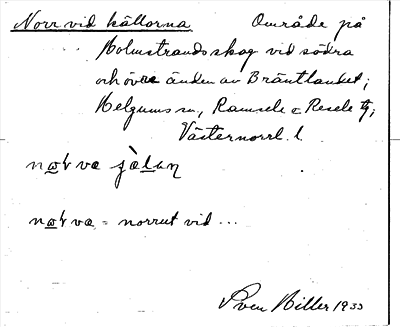 Norr vid källorna Område på
Holmstrands skog vid södra
och övre änden av Bräntlandet;
Helgums sn, Ramsele o Resele tg;
Västernorrl. l.
no̲r va jà̲lan
no̲r va = norrut vid ...
Sven Hiller 1933